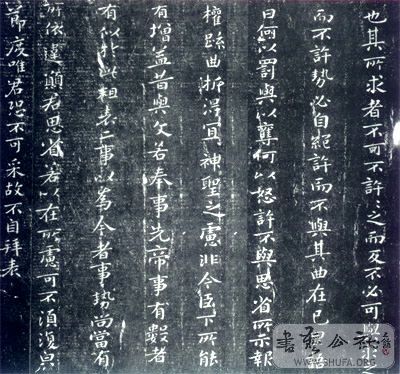 也其所求者不可不許〻之而反不必可與求之
而不許勢必自絕許而不與其曲在己里語
曰何以罰與以奪何以怒許不與思省所示報
權疏曲折得宜神聖之慮非今臣下所能
有增益昔與文若奉事先帝事有數者
有似於此粗表二事以為今者事勢尚當有
所依違願君思省若以在所慮可不須復皃
節度唯君恐不可采故不自拜表
書藝公社
WWW.SHUFA.ORG